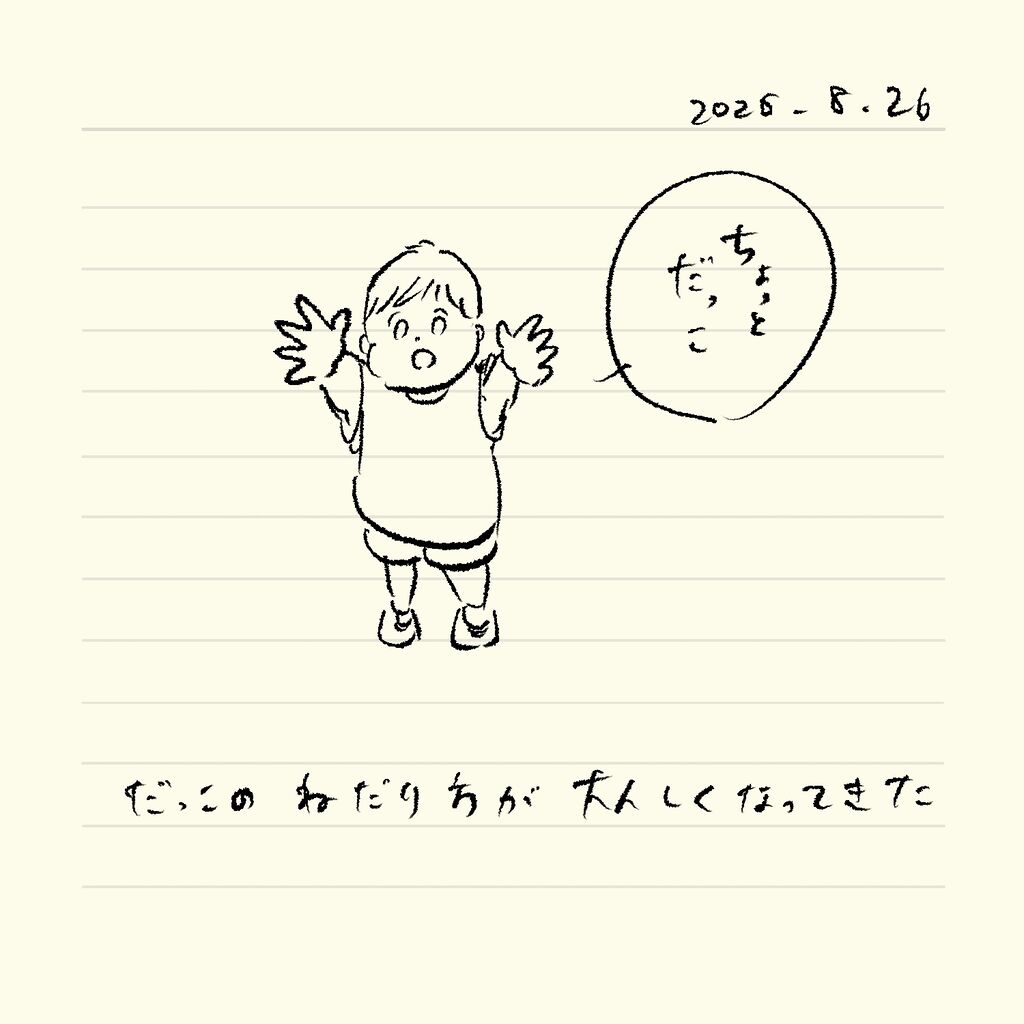 2025-8.26
ちょっと
だっこ
だっこの ねだり方が 大人しくなってきた